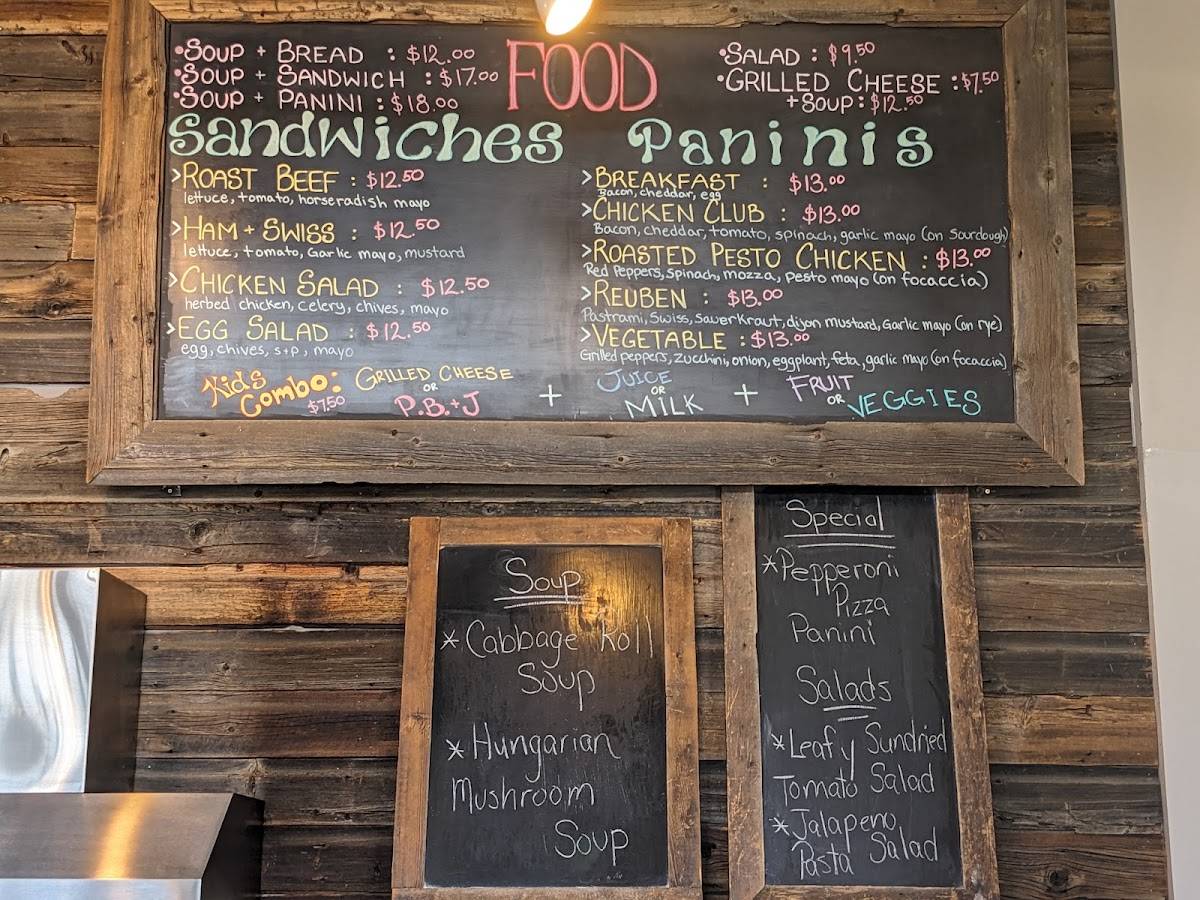 •Soup + Bread : $12.00
•Soup + Sandwich : $17.00
•Soup + Panini : $18.00
FOOD
•Salad : $9.50
•Grilled Cheese : $7.50
+ Soup : $12.50
Sandwiches
>Roast Beef : $12.50
lettuce, tomato, horseradish mayo
>Ham + Swiss : $12.50
lettuce, tomato, Garlic mayo, mustard
>Chicken Salad : $12.50
herbed chicken, celery, chives, mayo
>Egg Salad : $12.50
egg, chives, s+p, mayo
Paninis
>Breakfast : $13.00
Bacon, cheddar, egg
>Chicken Club : $13.00
Bacon, cheddar, tomato, spinach, garlic mayo (on sourdough)
>Roasted Pesto Chicken : $13.00
Red Peppers, spinach, mozza, pesto mayo (on focaccia)
>Reuben : $13.00
Pastrami, Swiss, Sauerkraut, dijon mustard, Garlic mayo (on rye)
>Vegetable : $13.00
Grilled peppers, zucchini, onion, eggplant, feta, garlic mayo (on focaccia)
Kids Combo: $7.50
Grilled Cheese
or
P.B.+J
+
Juice
or
Milk
+
Fruit
or Veggies
Soup
*Cabbage Roll
Soup
*Hungarian
Mushroom
Soup
Special
*Pepperoni
Pizza
Panini
Salads
*Leafy Sundried
Tomato Salad
*Jalapeno
Pasta Salad